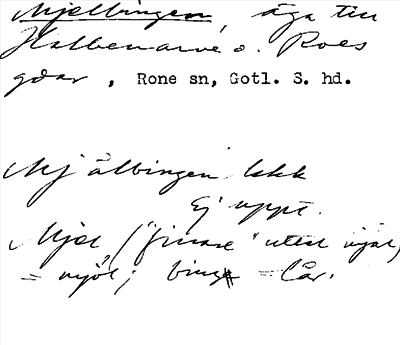 Mjelbingen, äga till
Halbenarve o. Roes
gdar, Rone sn, Gotl. S. hd.
Mjälbingen lkk
Ej uppt.
Mjöl ("finare" uttal mjäl)
= mjöl; binge = lår.